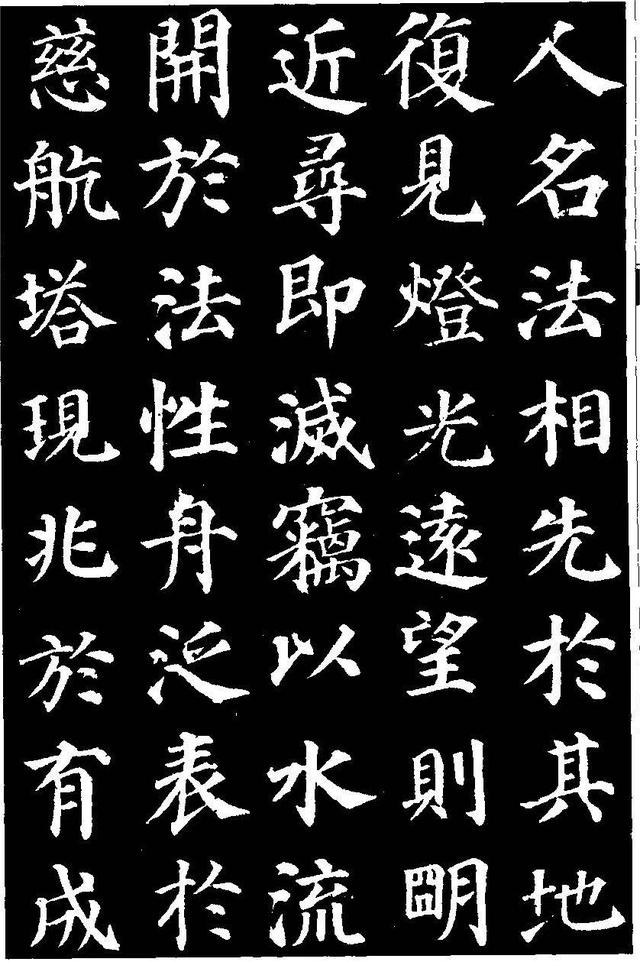 人名法相先於其地
復見燈光遠望則明
近尋即滅竊以水流
開於法性舟泛表於
慈航塔現兆於有成